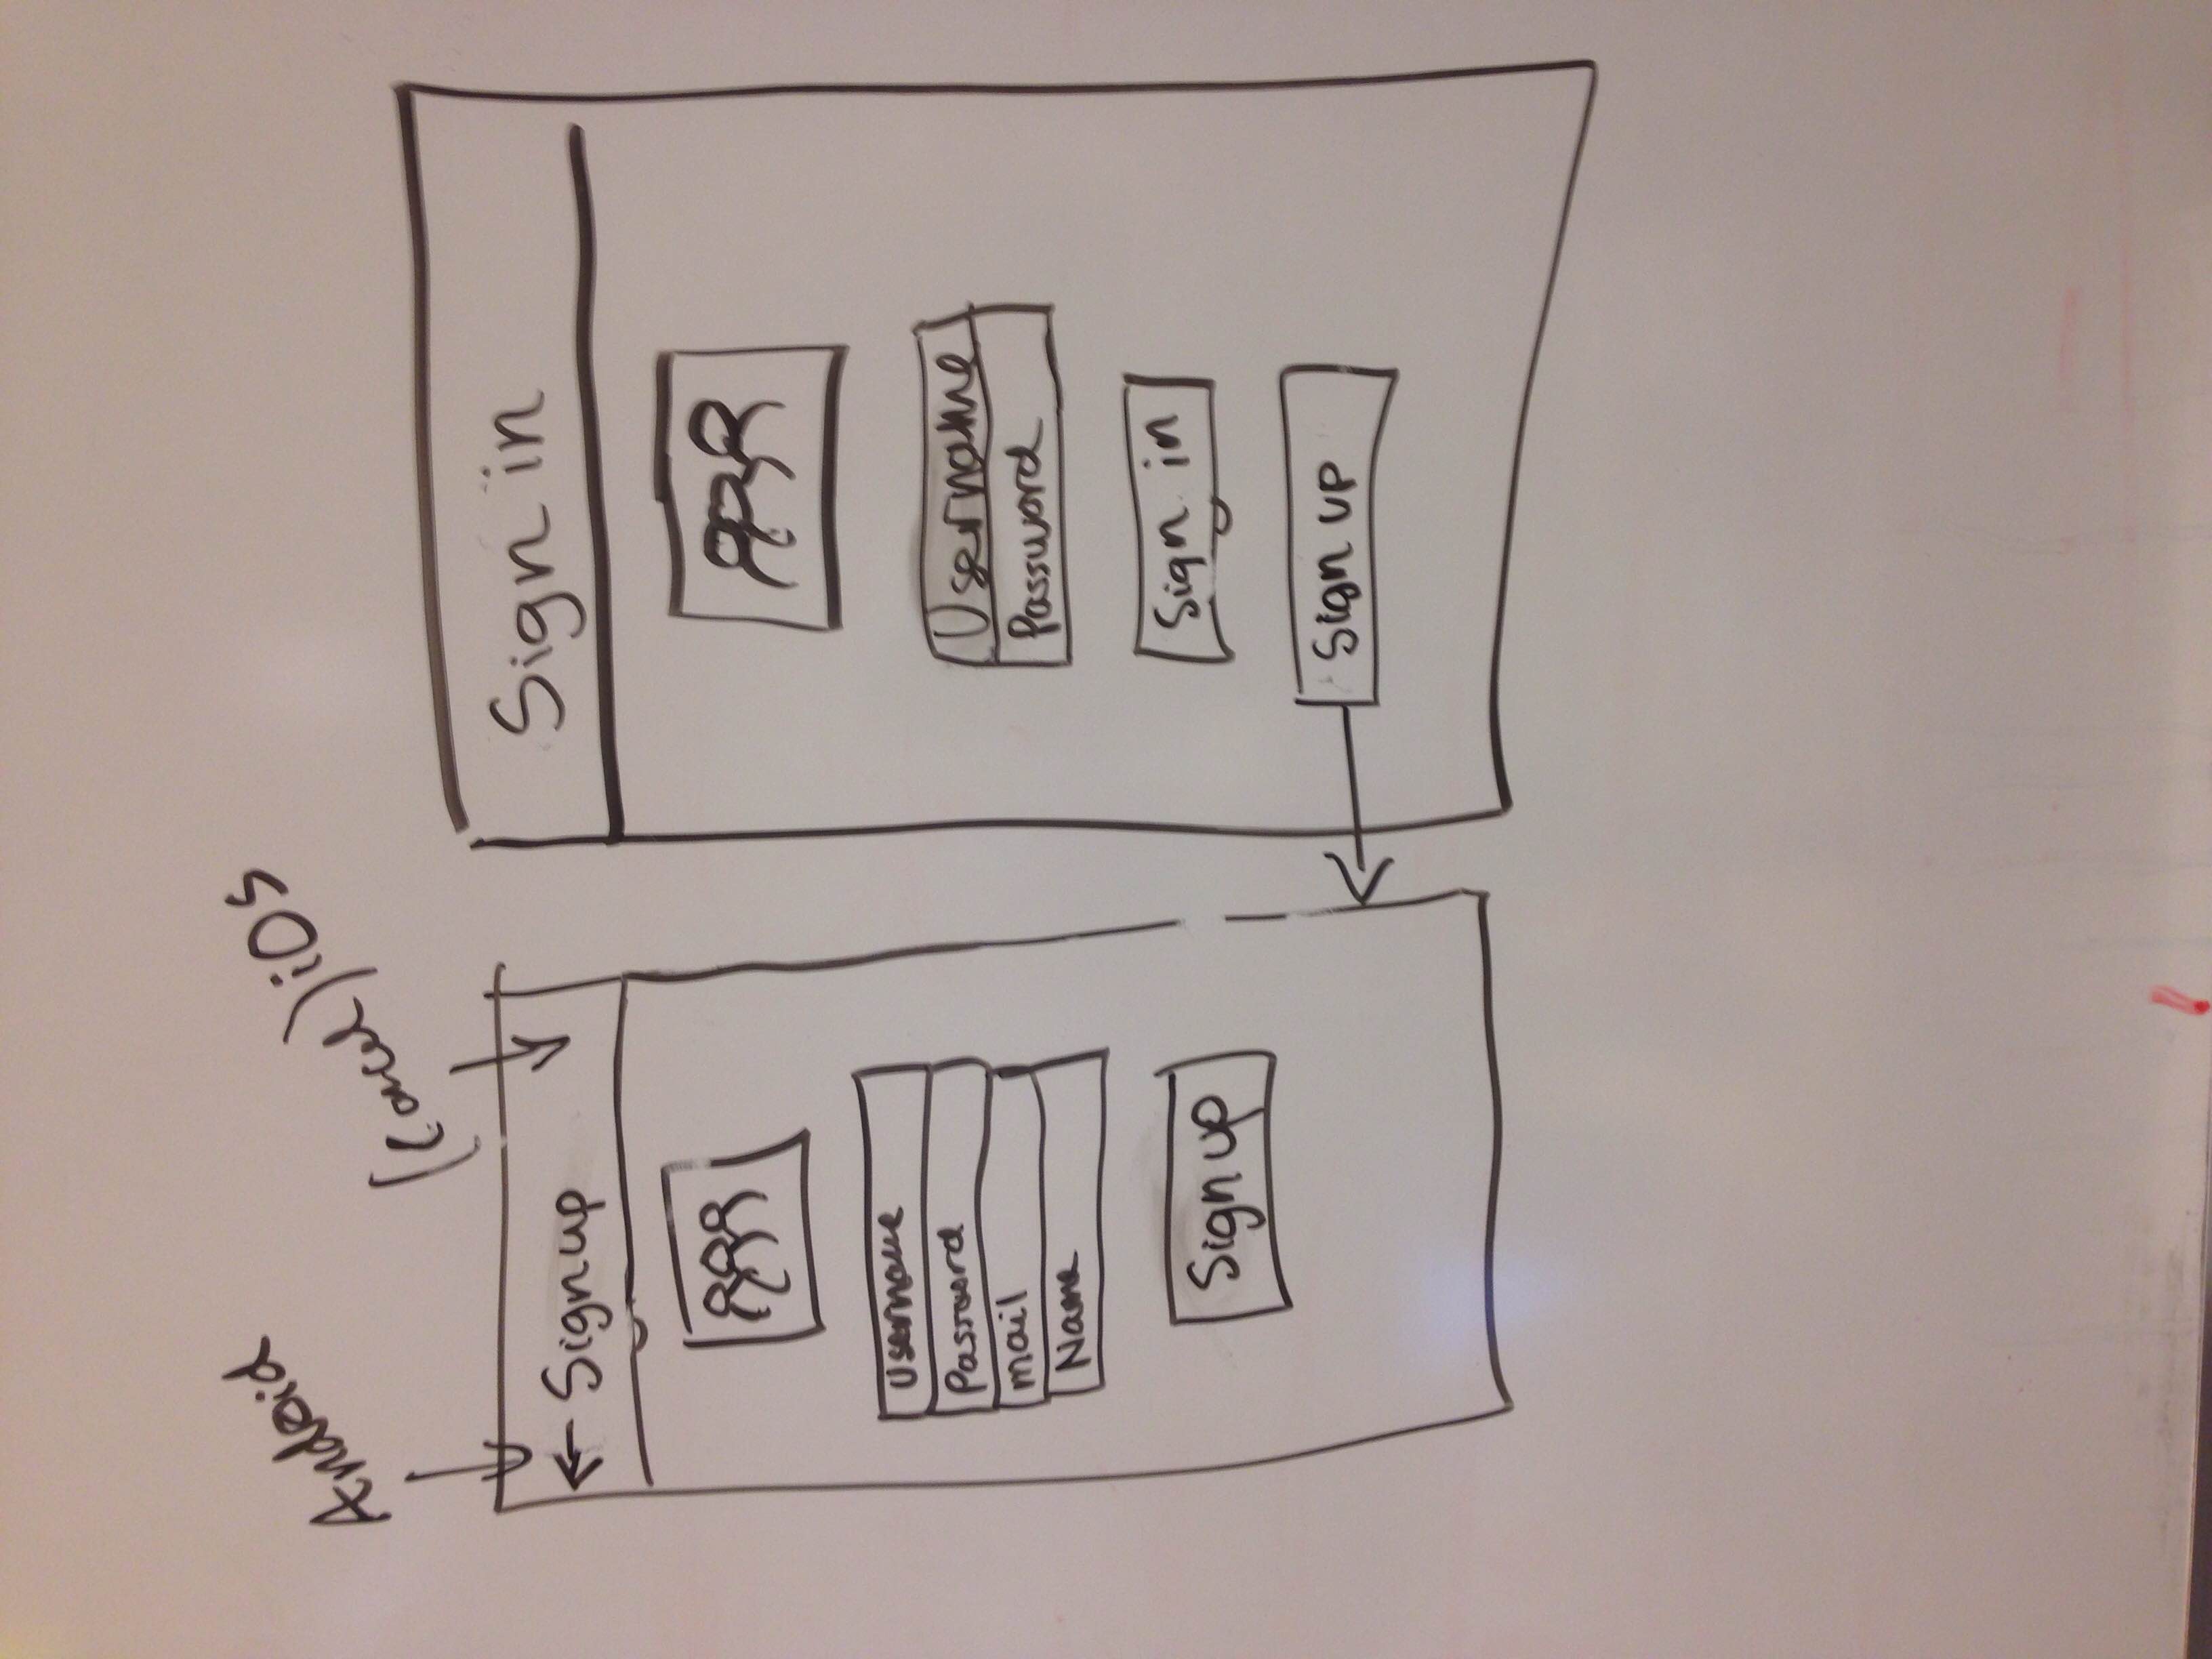 Android
(Cancel) iOS
← Sign up
Username
Password
mail
Name
Sign up
Sign in
Username
Password
Sign in
Sign up